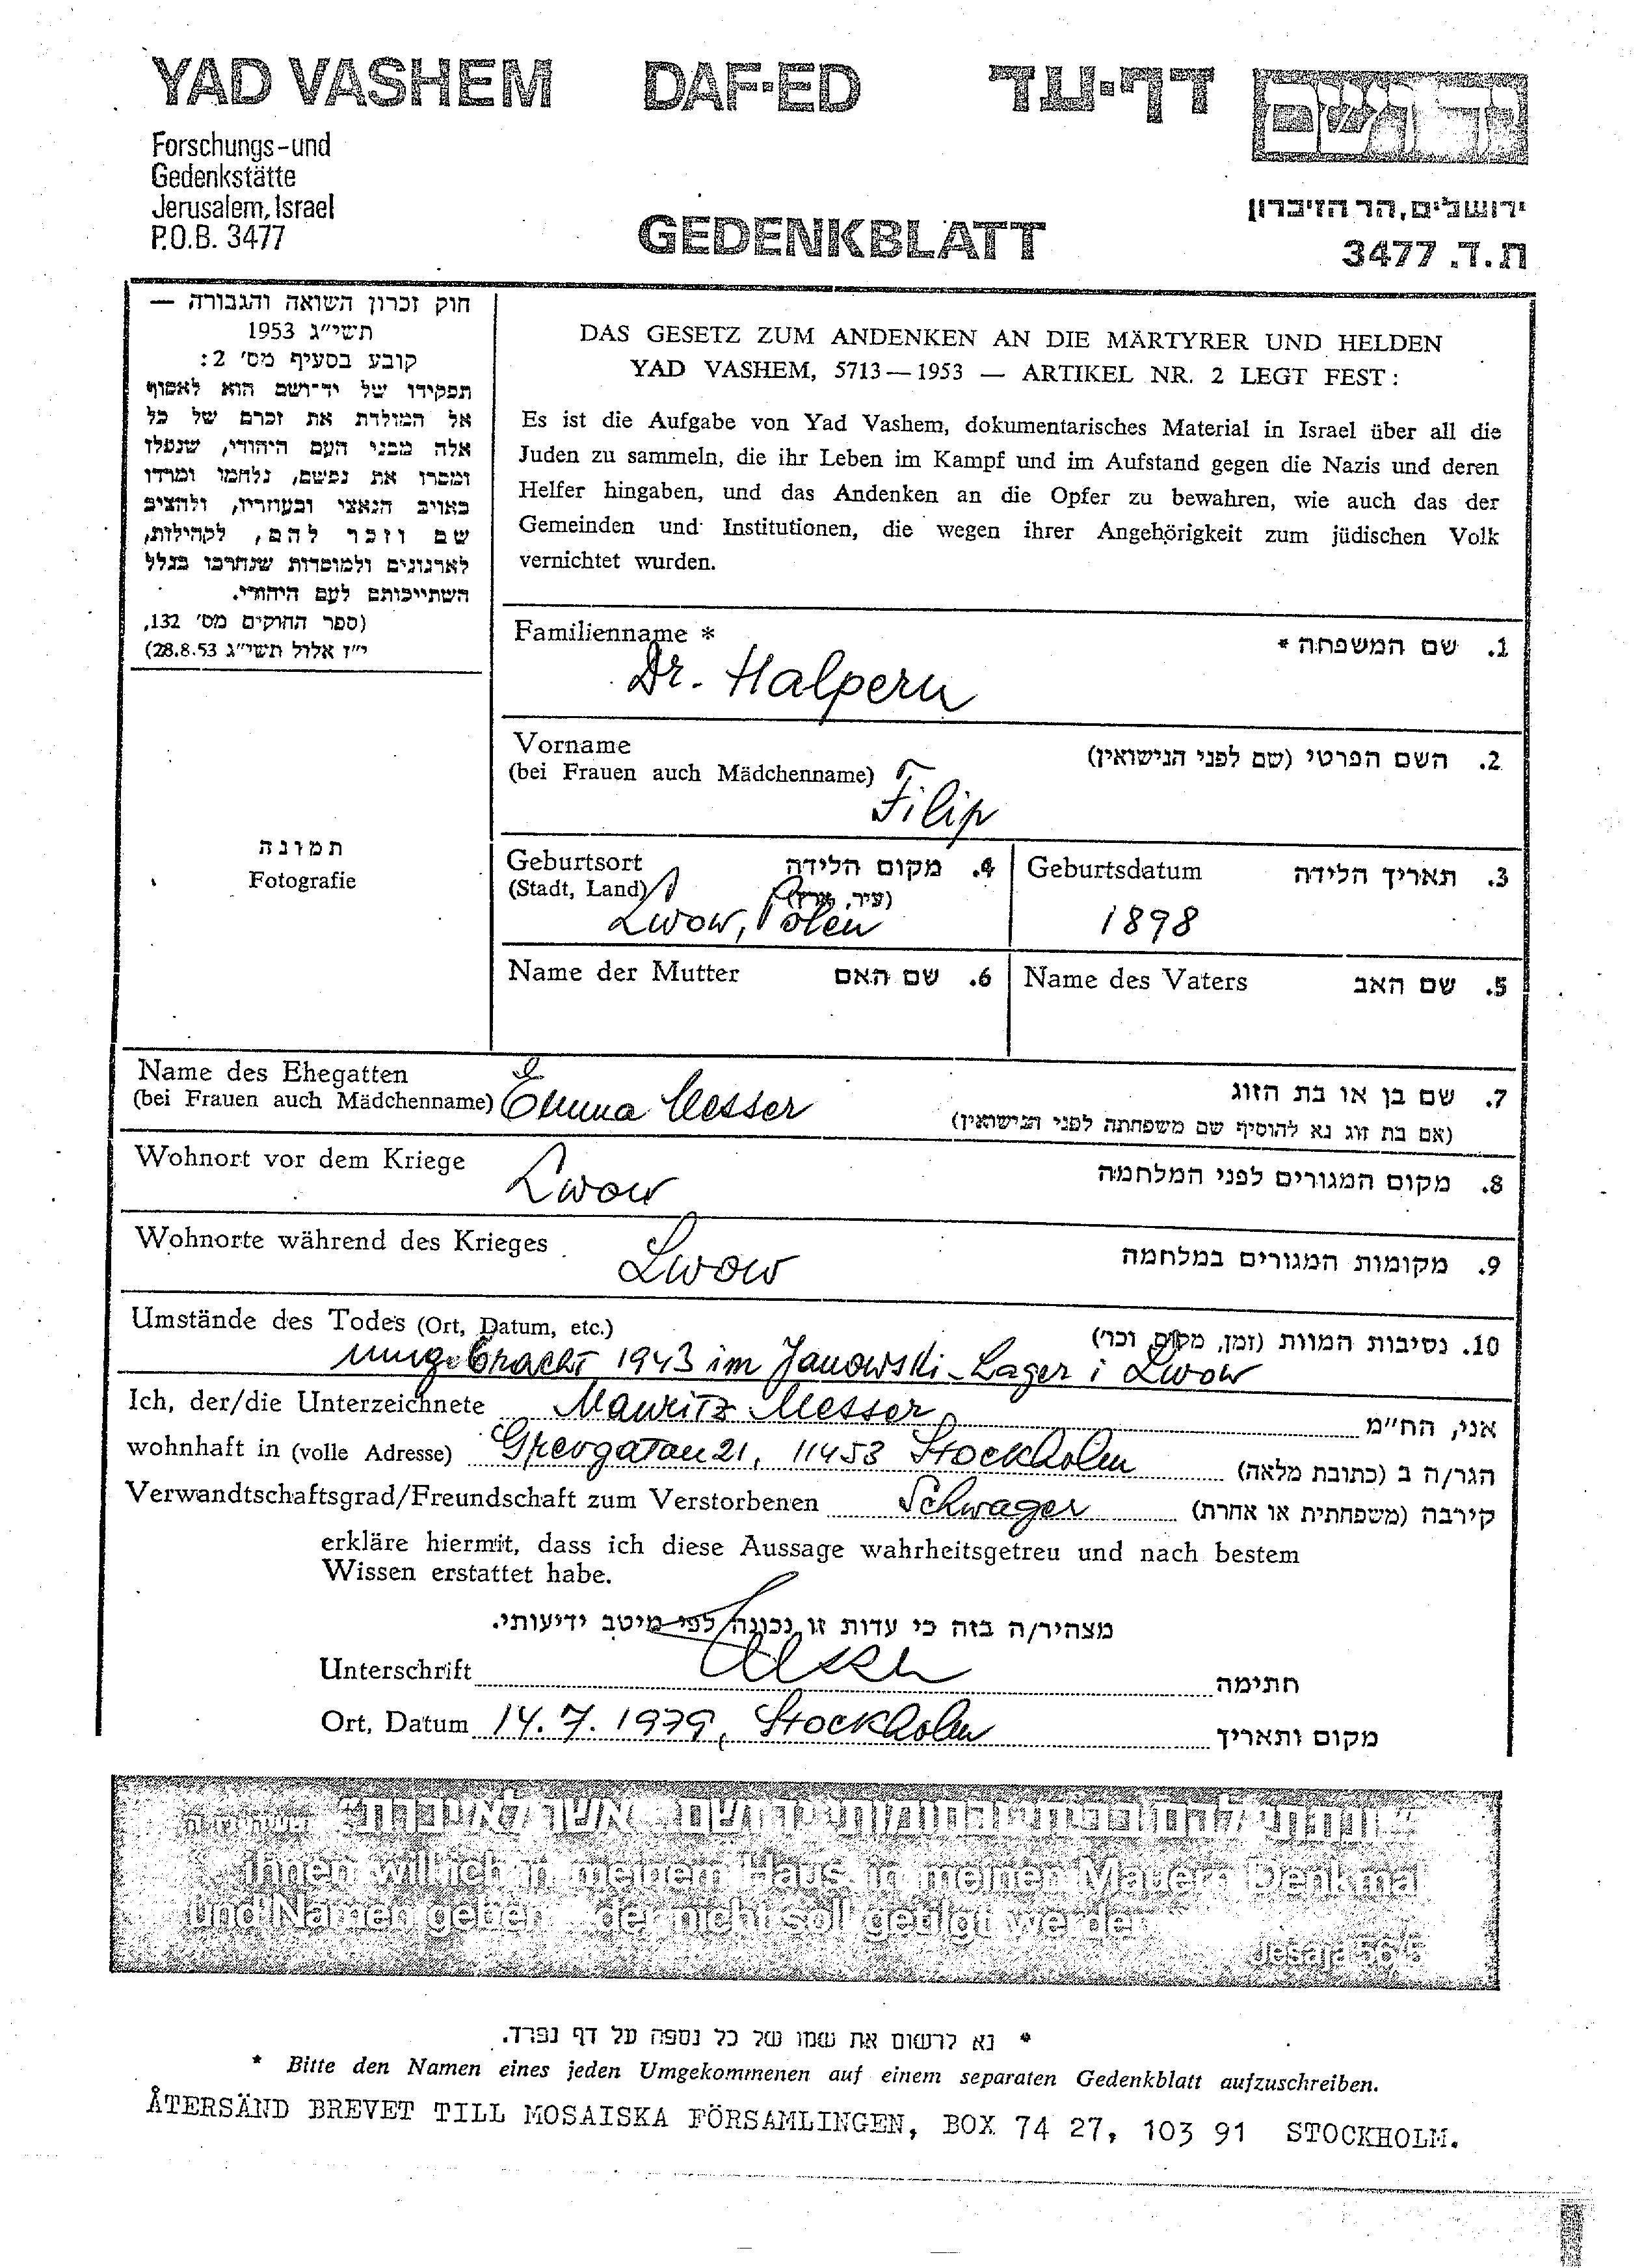 YAD VASHEM DAF-ED דף-עד יד ושם
Forschungs-und
Gedenkstätte
Jerusalem, Israel
P.O.B. 3477
ירושלים, הר הזיכרון
ת.ד. 3477
GEDENKBLATT
חוק זכרון השואה והגבורה —
תשי״ג 1953
קובע בסעיף מס׳ 2:
תפקידו של יד־ושם הוא לאסוף
אל המולדת את זכרם של כל
אלה מבני העם היהודי, שנפלו
ומסרו את נפשם, נלחמו ומרדו
באויב הנאצי ובעוזריו, ולהציב
שם וזכר להם, לקהילות,
לארגונים ולמוסדות שנחרבו בגלל
השתייכותם לעם היהודי.
(ספר החוקים מס׳ 132,
י״ז אלול תשי״ג 28.8.53)
DAS GESETZ ZUM ANDENKEN AN DIE MÄRTYRER UND HELDEN
YAD VASHEM, 5713—1953 — ARTIKEL NR. 2 LEGT FEST:
Es ist die Aufgabe von Yad Vashem, dokumentarisches Material in Israel über all die
Juden zu sammeln, die ihr Leben im Kampf und im Aufstand gegen die Nazis und deren
Helfer hingaben, und das Andenken an die Opfer zu bewahren, wie auch das der
Gemeinden und Institutionen, die wegen ihrer Angehörigkeit zum jüdischen Volk
vernichtet wurden.
Familienname * 1. שם המשפחה *
Dr. Halpern
Vorname 2. השם הפרטי (שם לפני הנישואין)
(bei Frauen auch Mädchenname)
Filip
תמונה
Fotografie
Geburtsort 4. מקום הלידה
(Stadt, Land) (עיר, ארץ)
Lwow, Polen
Geburtsdatum 3. תאריך הלידה
1898
Name der Mutter 6. שם האם
Name des Vaters 5. שם האב
Name des Ehegatten 7. שם בן או בת הזוג
(bei Frauen auch Mädchenname) Emma Messer (אם בת זוג נא להוסיף שם משפחתה לפני הנישואין)
Wohnort vor dem Kriege Lwow 8. מקום המגורים לפני המלחמה
Wohnorte während des Krieges Lwow 9. מקומות המגורים במלחמה
Umstände des Todes (Ort, Datum, etc.) 10. נסיבות המוות (זמן, מקום, וכו׳)
umgebracht 1943 im Janowski-Lager i Lwow
Ich, der/die Unterzeichnete Mauritz Messer אני, הח״מ
wohnhaft in (volle Adresse) Grevgatan 21, 11453 Stockholm הגר/ה ב (כתובת מלאה)
Verwandtschaftsgrad/Freundschaft zum Verstorbenen Schwager קירבה (משפחתית או אחרת)
erkläre hiermit, dass ich diese Aussage wahrheitsgetreu und nach bestem
Wissen erstattet habe.
מצהיר/ה בזה כי עדות זו נכונה לפי מיטב ידיעותי.
Unterschrift Messer חתימה
Ort, Datum 14.7.1979, Stockholm מקום ותאריך
״ונתתי להם בביתי ובחומותי יד ושם... אשר לא יכרת״
ihnen will ich in meinem Haus in meinen Mauern Denkmal
und Namen geben... der nicht soll getilgt werden
Jesaja 56/5
* נא לרשום את שמו של כל נספה על דף נפרד.
* Bitte den Namen eines jeden Umgekommenen auf einem separaten Gedenkblatt aufzuschreiben.
ÅTERSÄND BREVET TILL MOSAISKA FÖRSAMLINGEN, BOX 74 27, 103 91 STOCKHOLM.